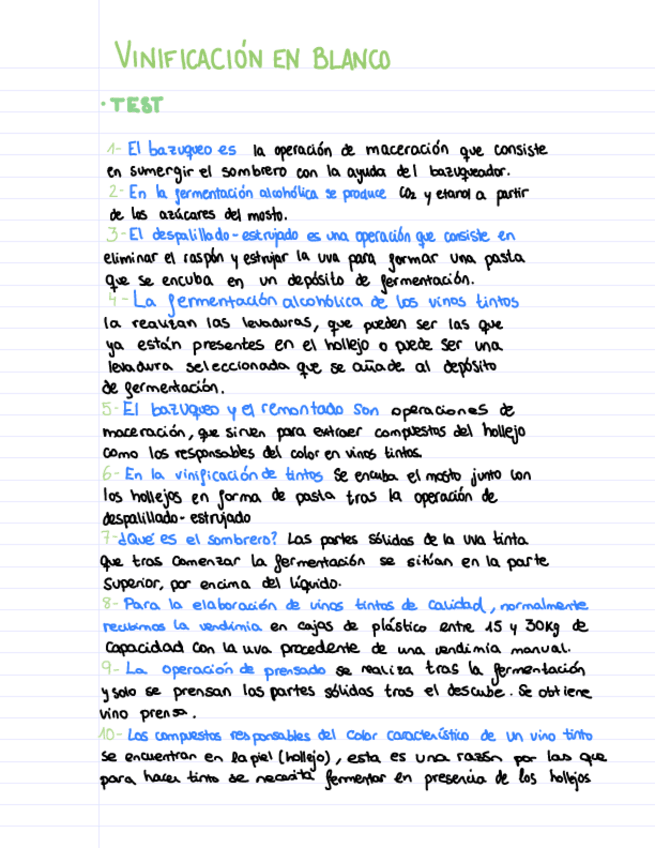 VINIFICACIÓN EN BLANCO
• TEST
1- El bazuqueo es la operación de maceración que consiste
en sumergir el sombrero con la ayuda del bazuqueador.
2- En la fermentación alcohólica se produce CO2 y etanol a partir
de los azúcares del mosto.
3- El despalillado-estrujado es una operación que consiste en
eliminar el raspón y estrujar la uva para formar una pasta
que se encuba en un depósito de fermentación.
4- La fermentación alcohólica de los vinos tintos
la realizan las levaduras, que pueden ser las que
ya están presentes en el hollejo o puede ser una
levadura seleccionada que se añade al depósito
de fermentación.
5- El bazuqueo y el remontado son operaciones de
maceración, que sirven para extraer compuestos del hollejo
como los responsables del color en vinos tintos.
6- En la vinificación de tintos se encuba el mosto junto con
los hollejos en forma de pasta tras la operación de
despalillado-estrujado
7- ¿Qué es el sombrero? Las partes sólidas de la uva tinta
que tras comenzar la fermentación se sitúan en la parte
superior, por encima del líquido.
8- Para la elaboración de vinos tintos de calidad, normalmente
recibimos la vendimia en cajas de plástico entre 15 y 30Kg de
capacidad con la uva procedente de una vendimia manual.
9- La operación de prensado se realiza tras la fermentación
y solo se prensan las partes sólidas tras el descube. Se obtiene
vino prensa.
10- Los compuestos responsables del color característico de un vino tinto
se encuentran en la piel (hollejo), esta es una razón por las que
para hacer tinto se necesita fermentar en presencia de los hollejos